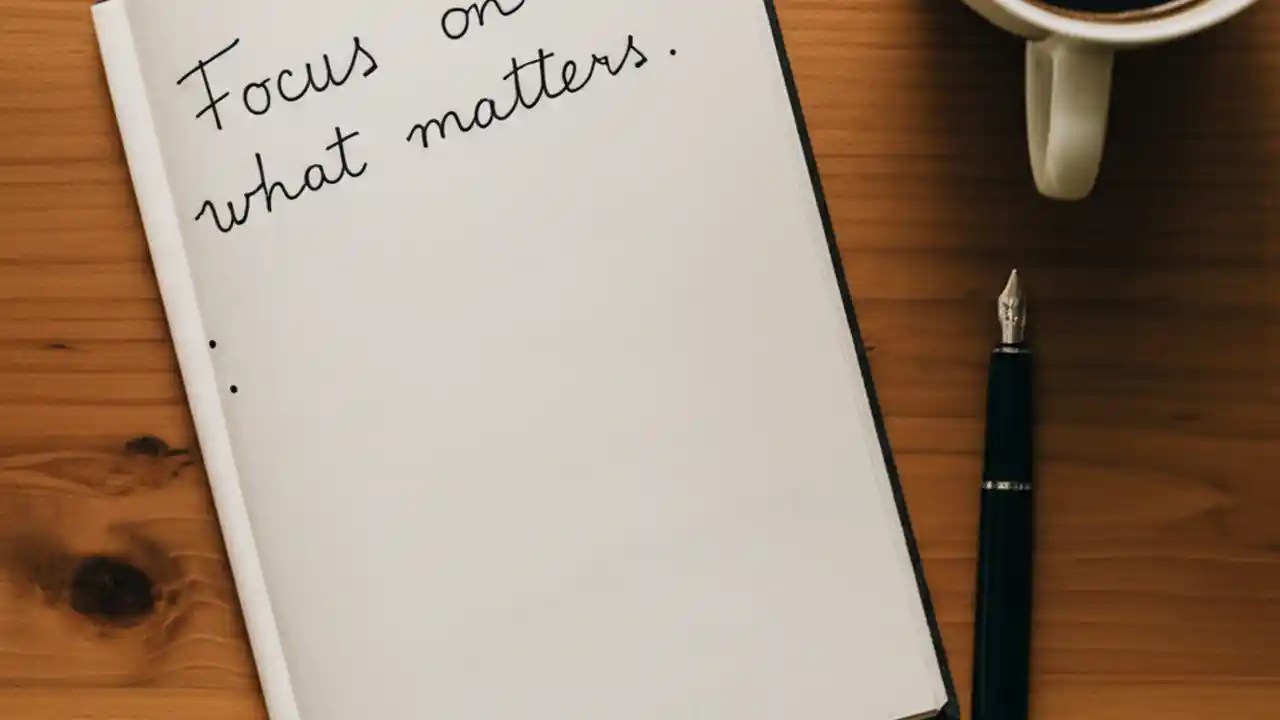 Focus on
what matters.